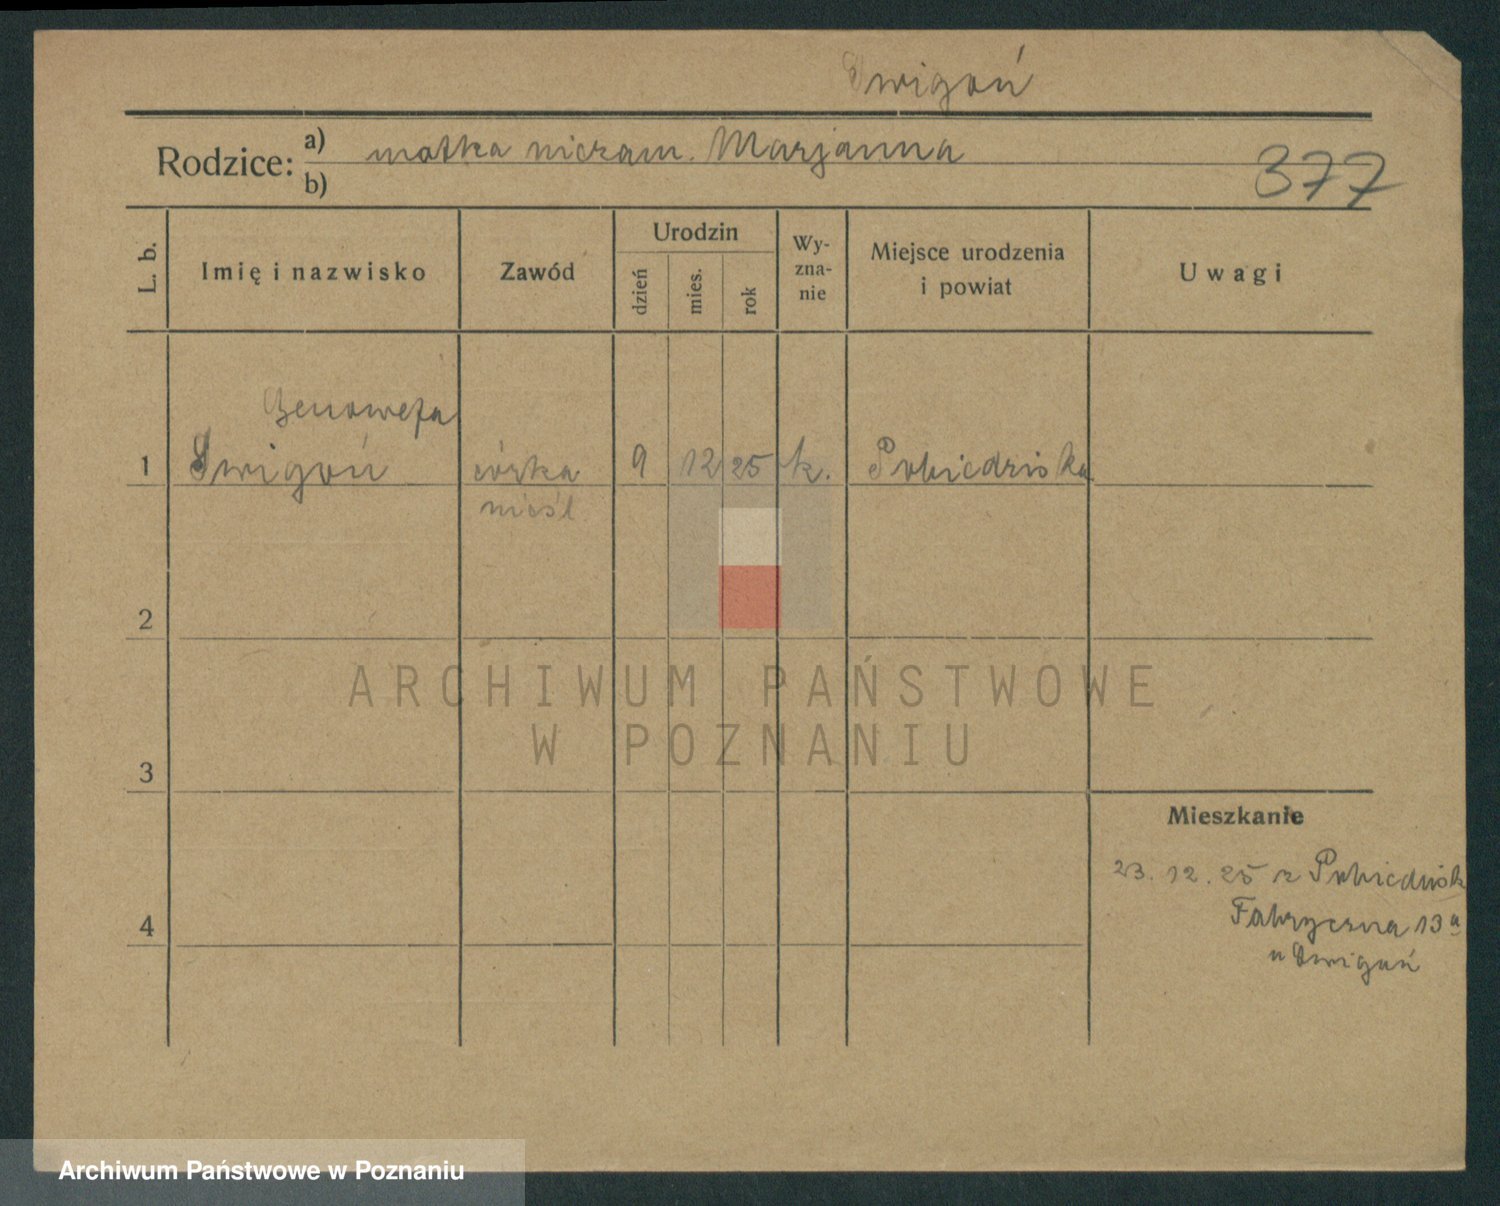 Swigoń
Rodzice:
a) matka niezam. Marjanna
b)
377
L. b.
Imię i nazwisko
Zawód
Urodzin
dzień
mies.
rok
Wy-
zna-
nie
Miejsce urodzenia
i powiat
Uwagi
Genowefa
1 Swigoń córka 9 12 25 k. Pobiedziska
nieśl
2
3
4
Mieszkanie
23. 12. 25 z Pobiedzisk
Fabryczna 13 a
u Swigoń
ARCHIWUM PAŃSTWOWE
W POZNANIU
Archiwum Państwowe w Poznaniu